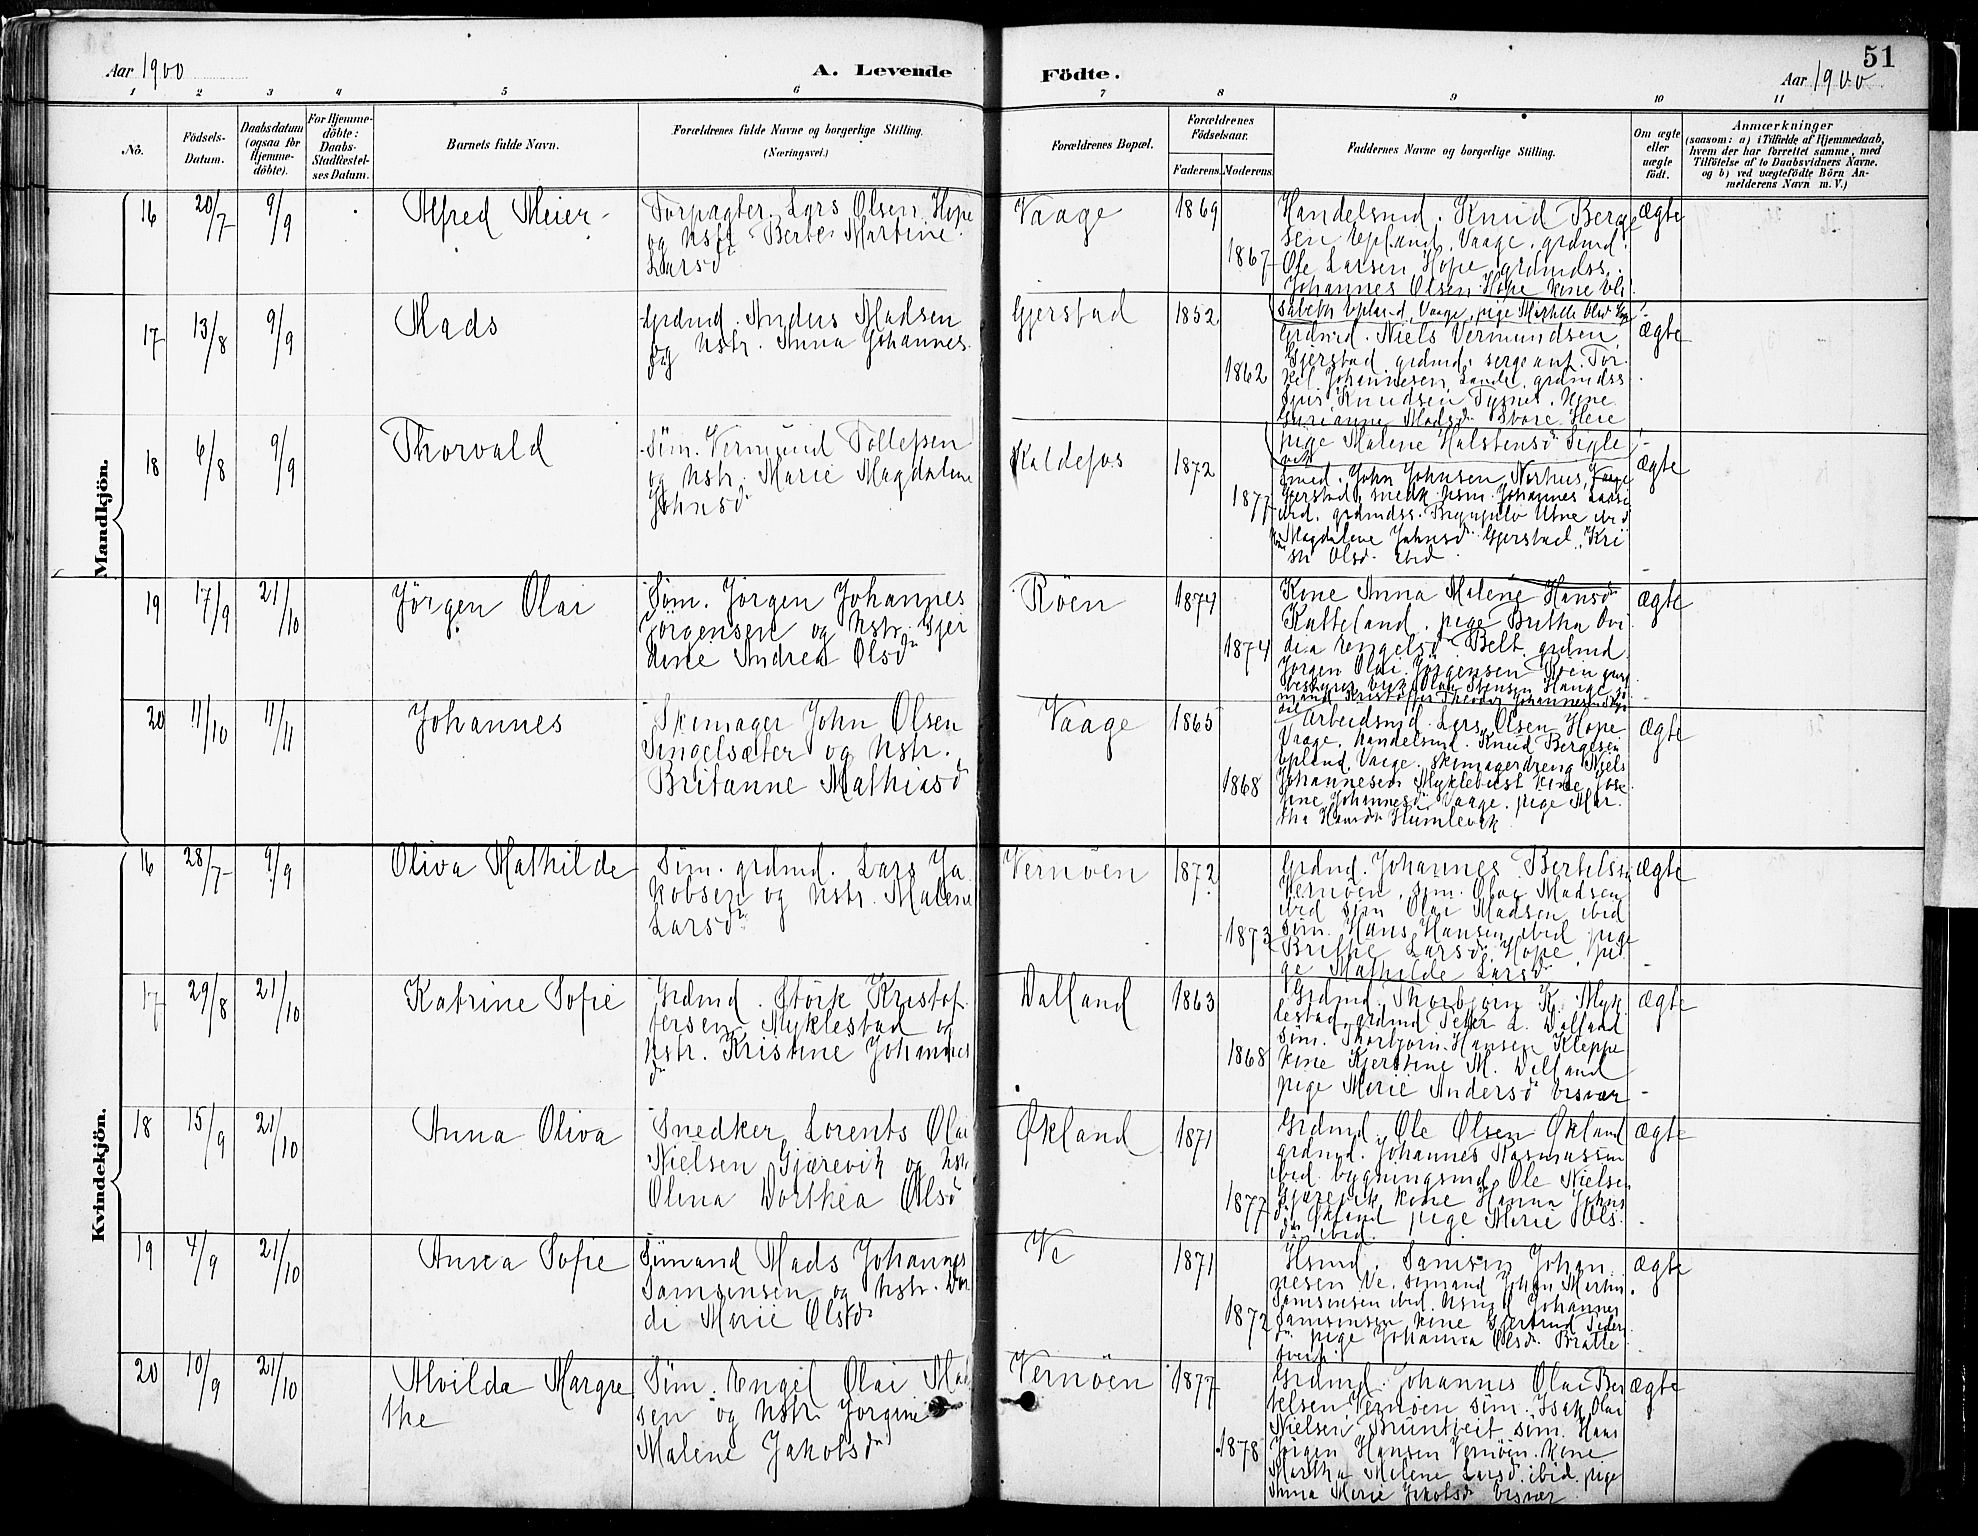 51
Aar 1900
A. Levende
Födte.
Aar 1900
1 2 3 4 5 6 7 8 9 10 11
No.
Födsels-
Datum.
Daabsdatum
(ogsaa for
Hjemme-
döbte).
For Hjemme-
döbte:
Daabs-
Stadfæstel-
ses Datum.
Barnets fulde Navn.
Forældrenes fulde Navne og borgerlige Stilling.
(Næringsvei.)
Forældrenes Bopæl.
Forældrenes
Födselsaar.
Faderens. Moderens.
Faddernes Navne og borgerlige Stilling.
Om ægte
eller
uægte
født.
Anmærkninger
(saasom: a) i Tilfælde af Hjemmedaab,
hvem der har forrettet samme, med
Tilföielse af to Daabsvidners Navne.
og b) ved uægtefödte Börn An-
melderens Navn m. V.)
Mandkjön.
16 20/7 9/9 Alfred Meier
Forpagter Lars Olsen Hope
og Hstr Berte Martine
Larsd
Vaage 1869 1867
Handelsmd. Knud Berge
sen Epland, Vaage, grdmd.
Ole Larsen Hope grdmdss.
Johannes Olsen Hope kone Eli
sabeth Epland, Vaage, pige Olsd
ægte
17 13/8 9/9 Mads
Grdmd. Anders Madsen
og Hstr. Anna Johannes
Gjerstad 1852 1862
Grdmd. Niels Vermundsen
Gjerstad grdmds sergeant Tor
kel Johannesen Landet, grdmdss
Sjur Knudsen Tysnes, kone
Madsd
pige Malene Halstensd Sigle
vik
ægte
18 6/8 9/9 Thorvald
Søm. Vermund Tollefsen
og Hstr. Marie Magdalene
Johnsd
Kaldefos 1872 1877
Smed. John Johnsen Nerhus, Vaage
Gjerstad, Hsm. Johannes
ibid, grdmdss. Brynjulv Utne ibid
Magdalene Johnsd Gjerstad, Kri
Olsd ibid
ægte
19 17/9 21/10 Jörgen Olai
Søm. Jørgen Johannes
Jørgensen og Hstr. Gjer
dine Andrea Olsd
Röen 1874 1874
Kone Anna Malene Hansd
Katteland, pige Britha Ovi
dia Engelsd Belt, grdmd
Jörgen Olai Jörgensen Röen
Stensen Hauge
Kristoffer Johannesen
ægte
20 11/10 11/11 Johannes
Skomager John Olsen
Singelsæter og Hstr.
Britanne Mathiasd
Vaage 1865 1868
Arbeidsmd. Lars Olsen Hope
Vaage, Handelsmd. Knud Bergesen
Epland, Vaage, Skomagerdreng Niels
Johannesen Myklebust kone Jose
fine Johannesd Vaage, pige Mar
tha Hansd Humlevik
ægte
Kvindekjön.
16 28/7 9/9 Oliva Mathilde
Søm. grdmd. Lars Ja
kobsen og Hstr. Malene
Larsd
Vernöen 1872 1873
Grdmd. Johannes Bertelsen
Vernöen, søm. Olai Madsen
ibid søm Olai Madsen ibid
søm. Hans Hansen ibid pige
Brithe Larsd Hope, pi
ge Mathilde Larsd
ægte
17 29/8 21/10 Katrine Sofie
Grdmd. Störk Kristof
fersen Myklestad og
Hstr. Kristine Johannes
d
Dalland 1863 1868
Grdmd. Thorbjørn K. Myk
lestad, grdmd Peter L. Dalland
søm. Thorbjørn Hansen Kleppe
kone Kjerstine M. Dalland
pige Marie Andersd Ersvær
ægte
18 15/9 21/10 Anna Oliva
Snedker Lorents Olai
Nielsen Gjærevik og Hstr
Olina Dorthea Olsd
Økland 1871 1877
Grdmd. Ole Olsen Økland
grdmd. Johannes Rasmussen
ibid. bygningsmd Ole Nielsen
Gjærevik kone Hanna Johns
d Økland pige Marie Ols
d ibid.
ægte
19 4/9 21/10 Anna Sofie
Sømand Mads Johannes
Samsonsen og Hstr. Dor
di Marie Olsd
Ve 1871 1872
Hsmd. Samson Johan
nesen Ve, sømand Johan Martin
Samsonsen ibid. Hsmd Johannes
Samsonsen kone Gjertrud Peder
d pige Johanna Olsd Bratte
tveit
ægte
20 10/9 21/10 Alvilda Margre
the
Søm. Engel Olai Mad
sen og Hstr. Jorgine
Malene Jakobsd
Vernöen 1877 1878
Grdmd. Johannes Olai Ber
telsen Vernöen søm. Isak Olai
Nielsen Bruntveit søm. Hans
Jörgen Hansen Vernöen. Kone
Martha Malene Larsd. ibid. pige
Anna Marie Jakobsd Ersvær
ægte